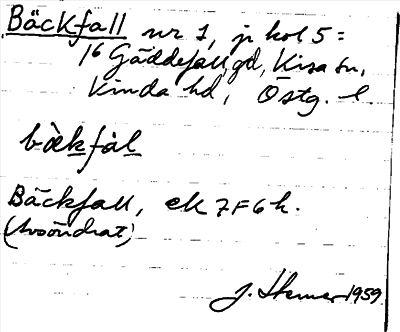 Bäckfall nr 1, p kol 5 =
16 Gäddefall, gd, Kisa sn,
Kinda hd, Östg. l
bàkfàl
Bäckfall, ek 7F6h.
(Avsöndrat)
J. 1959